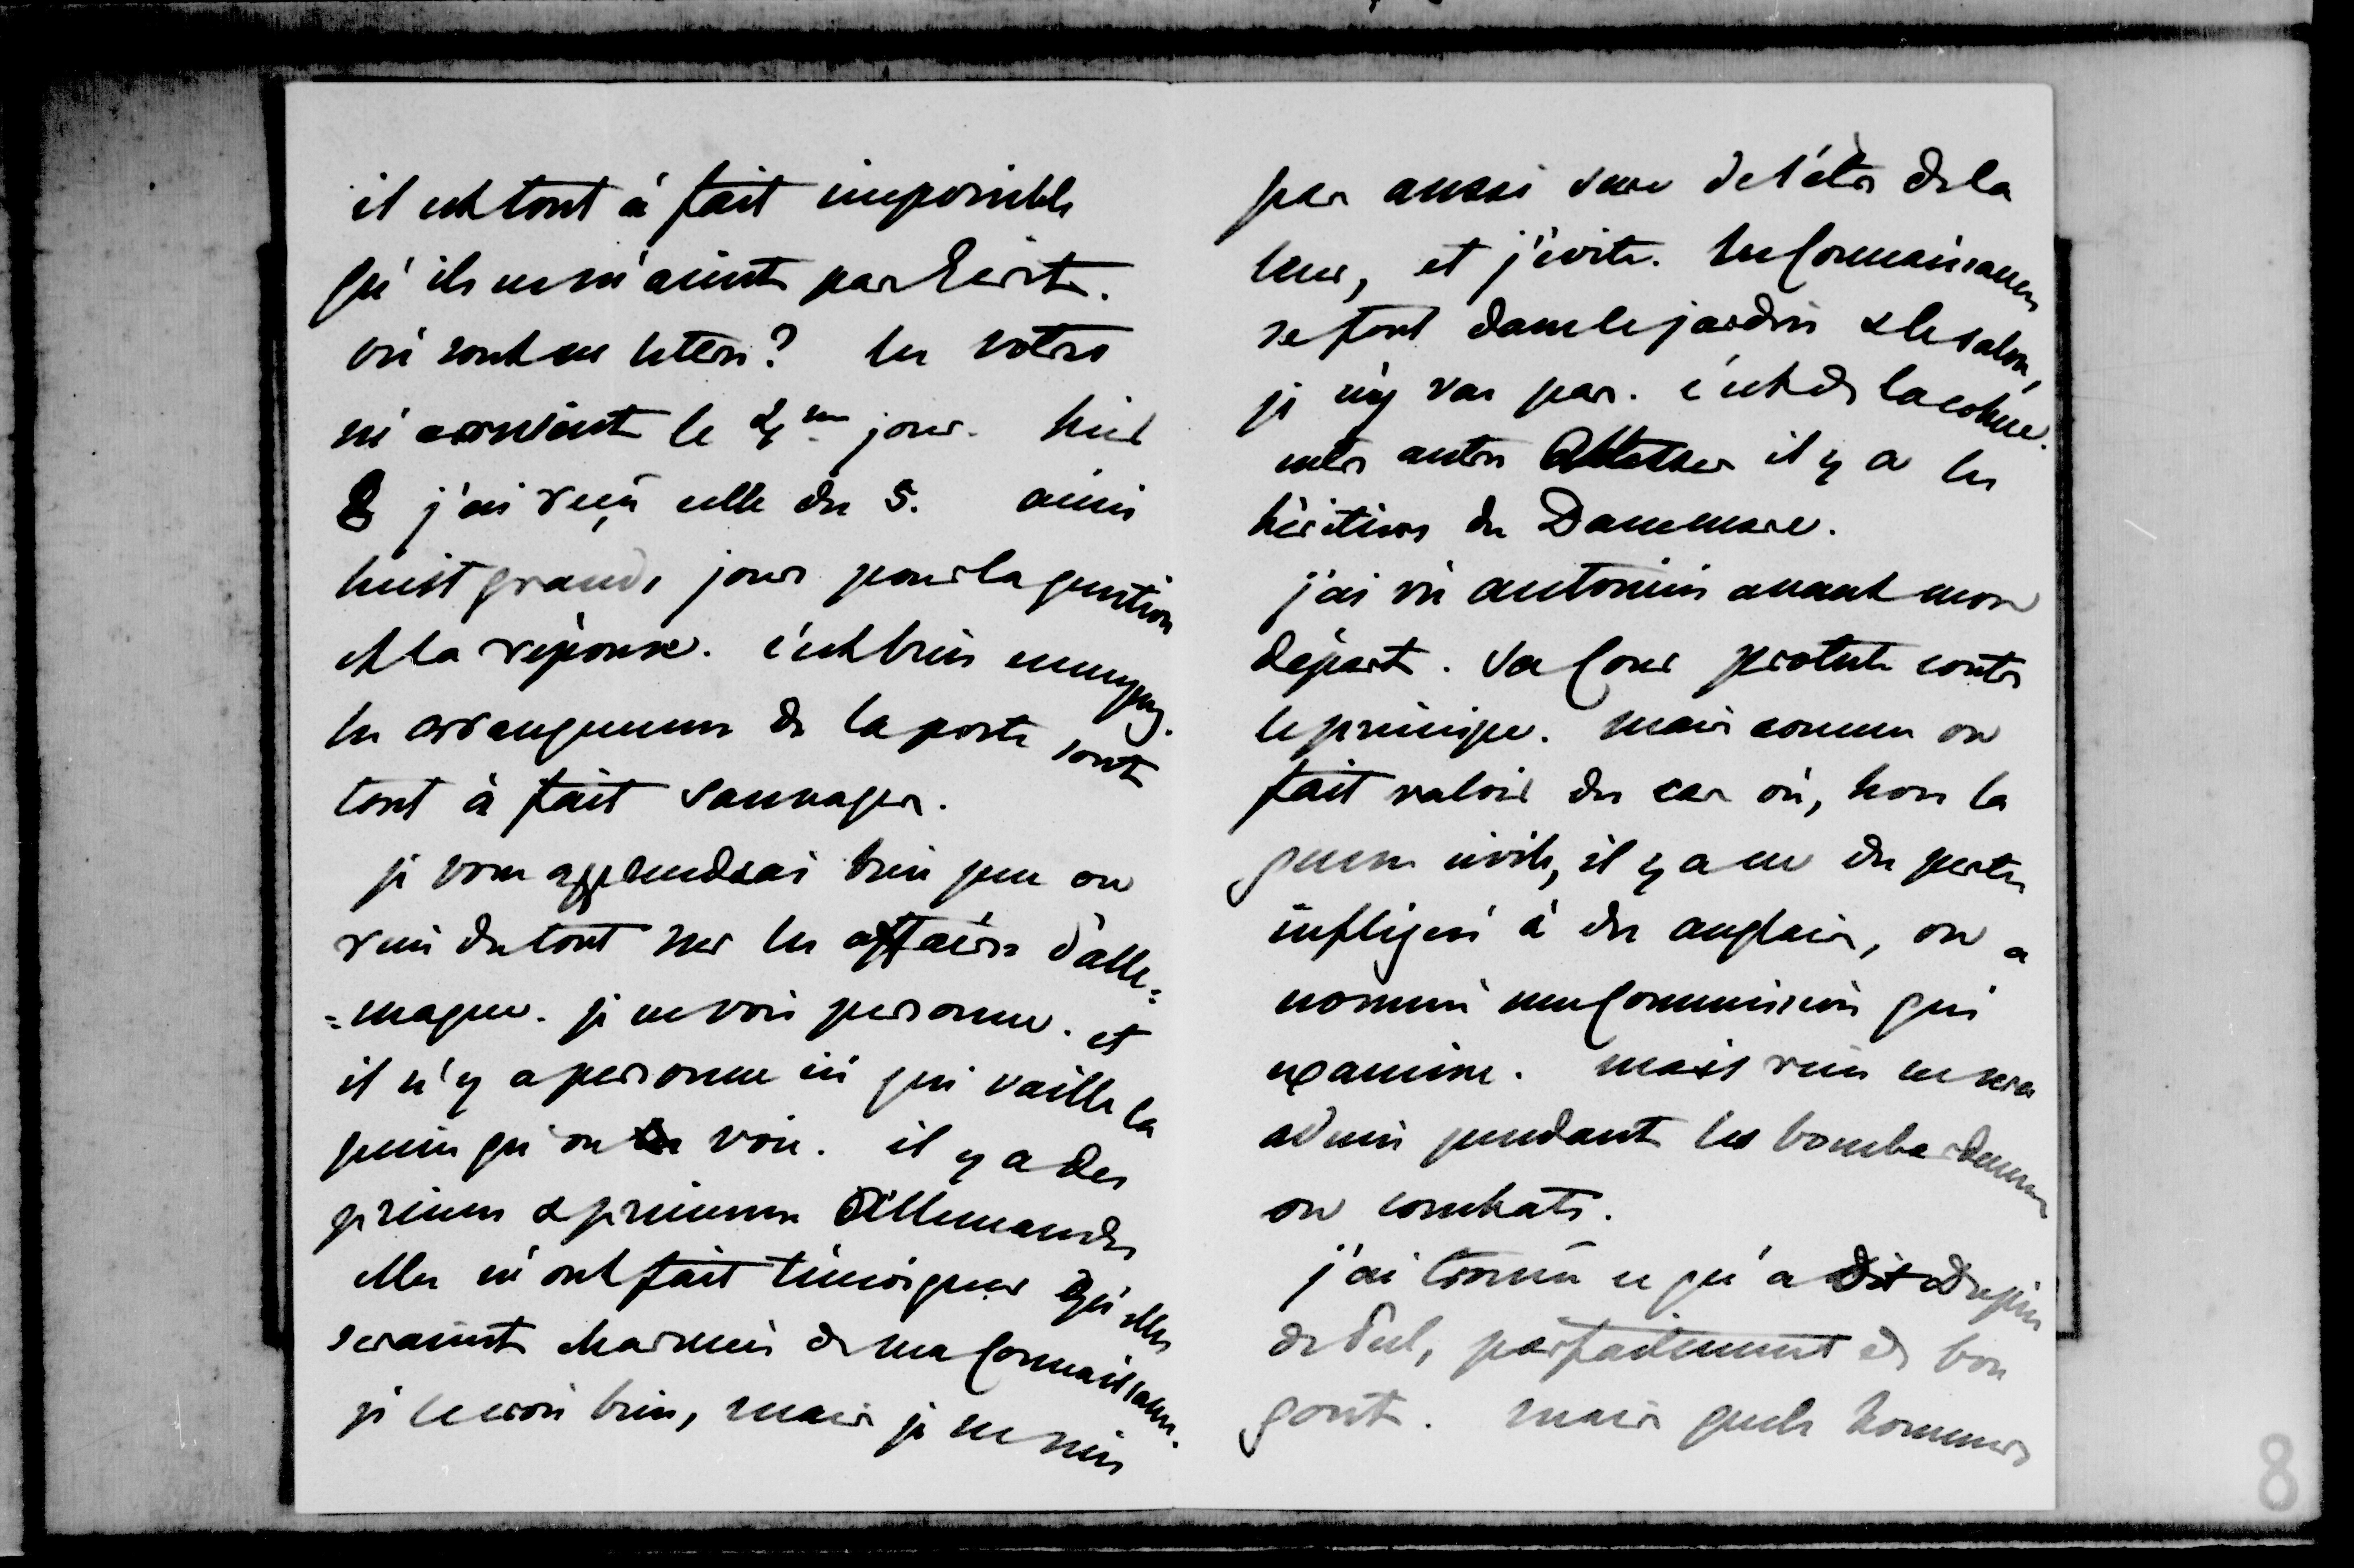 il est tout à fait impossible
qu'ils ne m'aient pas écrit.
où sont ces lettres? les votres
m'arrivent le 4me jour. hier
8 j'ai reçu celle du 5. ainsi
huit grands jours pour la question
et la réponse. c'est bien ennuyeux.
les arrangemens de la poste sont
tout à fait sauvages.
je vous apprendrai bien peu ou
rien du tout sur les affaires d'alle=
=magne. je ne vois personne. et
il n'y a personne ici qui vaille la
peine qu'on voie. il y a des
princes & princesses Allemandes
elles m'ont fait témoigner qu'elles
seraient charmées de ma connaissance.
je le crois bien, mais je ne suis
pas aussi sure de l'être de la
leur, et j'évite. les connaissances
se font dans le jardin & le salon,
je n'y vas pas. c'est de la cohue.
entre autres Altesses il y a les
héritiers du Dannemarc.
j'ai vu antonini avant mon
départ. sa Cour proteste contre
le principe. mais comme on
fait valoir des cas où, hors la
guerre civile, il y a eu des pertes
infligées à des anglais, on a
nommé une Commission qui
examine. mais rien ne sera
admis pendant les bombardemens
ou combats.
j'ai trouvé ce qu'a dit Dupin
de Peel, parfaitement de bon
gout. mais quels hommes
8